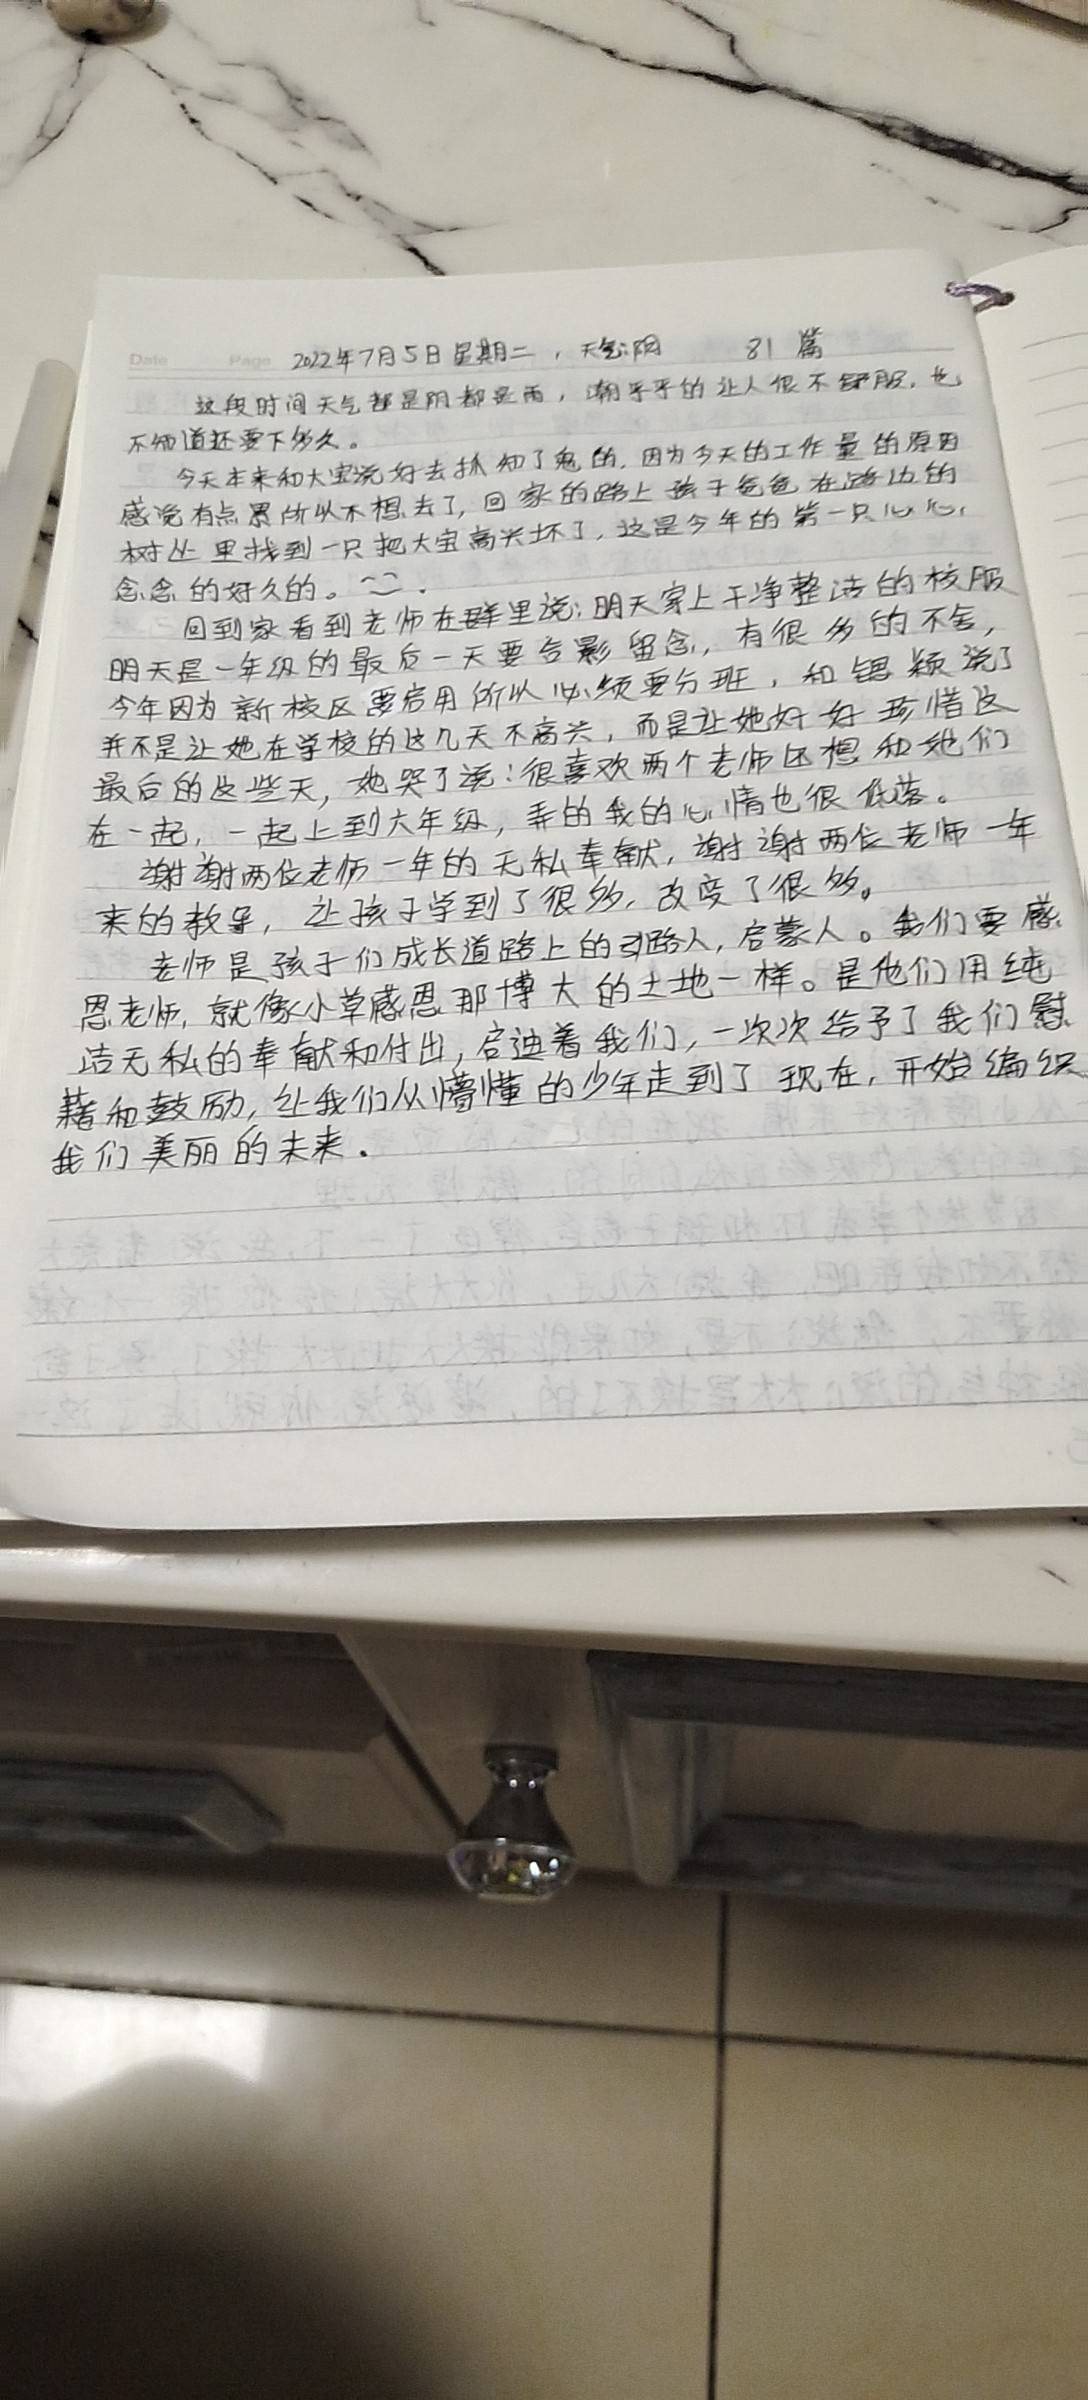 Date Page 2022年7月5日星期二，天气:阴 81篇
这段时间天气都是阴都是雨，潮乎乎的让人很不舒服，也
不知道还要下多久。
今天本来和大宝说好去抓知了鬼的，因为今天的工作量的原因
感觉有点累所以不想去了，回家的路上孩子爸爸在路边的
树丛里找到一只把大宝高兴坏了，这是今年的第一只心心
念念的好久的。
回到家看到老师在群里说：明天穿上干净整洁的校服
明天是一年级的最后一天要合影留念，有很多的不舍，
今年因为新校区要启用所以必须要分班，和锶颖说了
并不是让她在学校的这几天不高兴，而是让她好好珍惜这
最后的这些天，她哭了说：很喜欢两个老师还想和她们
在一起，一起上到六年级，弄的我的心情也很低落。
谢谢两位老师一年的无私奉献，谢谢两位老师一年
来的教导，让孩子学到了很多，改变了很多。
老师是孩子们成长道路上的引路人，启蒙人。我们要感
恩老师，就像小草感恩那博大的土地一样。是他们用纯
洁无私的奉献和付出，启迪着我们，一次次给予了我们慰
藉和鼓励，让我们从懵懂的少年走到了现在，开始编织
我们美丽的未来.